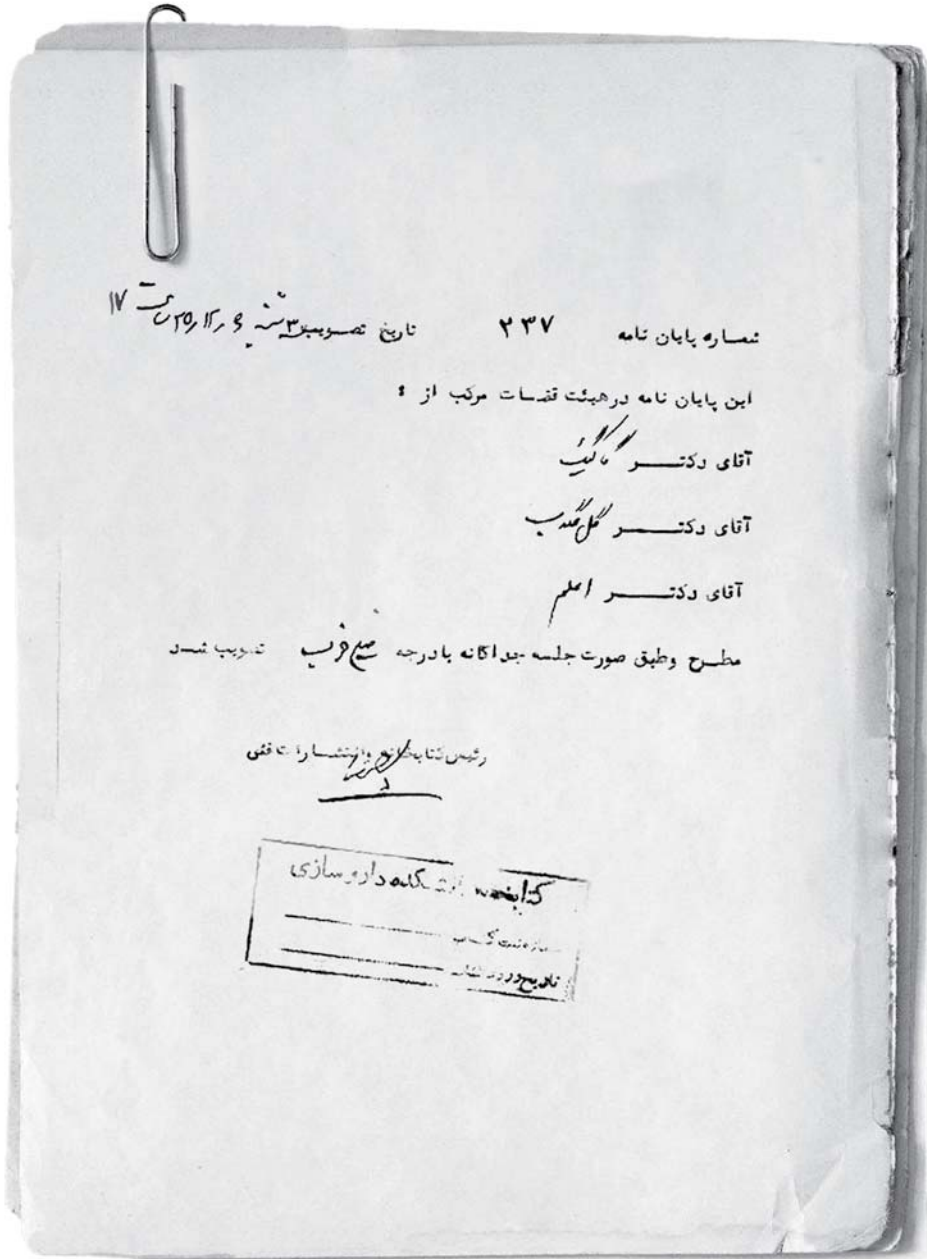 شماره پایان نامه ۲۳۷ تاریخ تصویب ۳ شنبه ۲۵ ر ۱۲ ر ساعت ۱۷
این پایان نامه در هیئت قضات مرکب از :
آقای دکتر
آقای دکتر گل گلاب
آقای دکتر اعلم
مطرح وطبق صورت جلسه جداگانه بادرجه تصویب شد
رئیس کتابخانه وانتشارات فنی
کتابخانه دانشکده داروسازی
شماره ثبت کتاب
تاریخ ورود